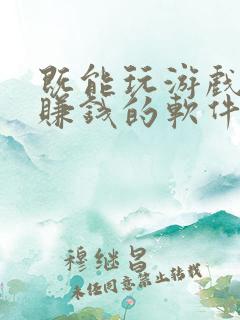 既能玩游戏
賺錢的軟件
穆继昌
未经同意禁止转载